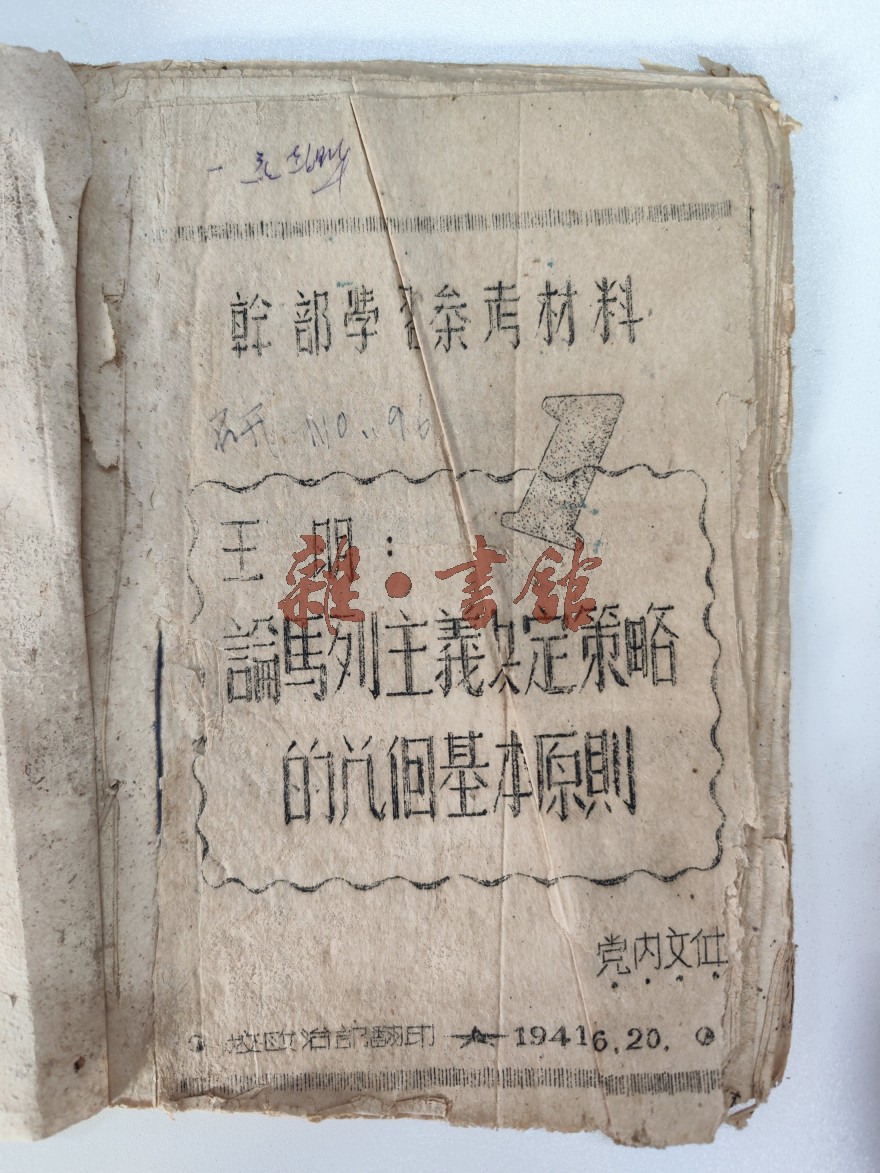 幹部學習参考材料
NO..96
1
王明：
雜·書館
論馬列主義决定策略
的几個基本原則
党内文件
校政治部翻印 1941 6.20.